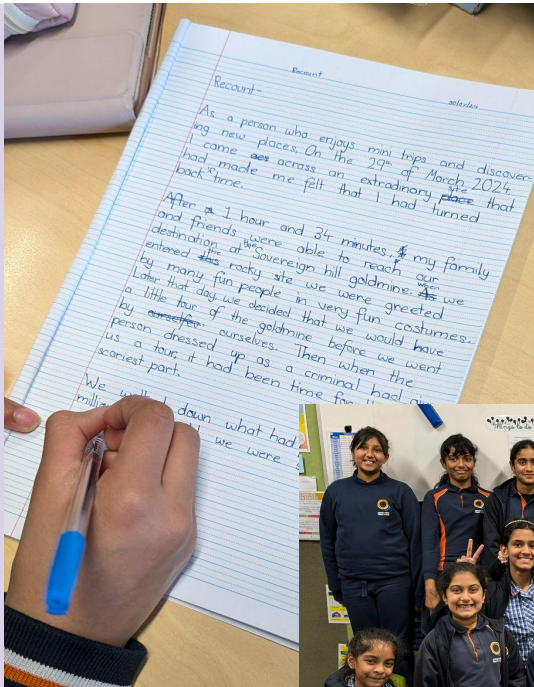 Recount
Recount-
As a person who enjoys mini trips and discover-
ing new places. On the 29th of March, 2024
I came across an extradinary site that
had made me felt that I had turned
back time.
After 1 hour and 34 minutes, my family
and friends were able to reach our
destination at the Sovereign hill goldmine. when we
entered the rocky site we were greeted
by many fun people in very fun costumes.
Later that day we decided that we would have
a little tour of the goldmine before we went
by ourselves. Then when the
person dressed up as a criminal had
us a tour, it had been time for
scariest part.
We down what had
we were
Things to do